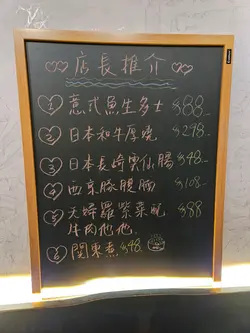 店長推介
1 意式魚生多士 $88
2 日本和牛厚燒 $298
3 日本長崎雲仙腸 $48
4 西京豚腹腩 $108
5 天婦羅紫菜配 $88
牛肉他他
6 關東煮 $48